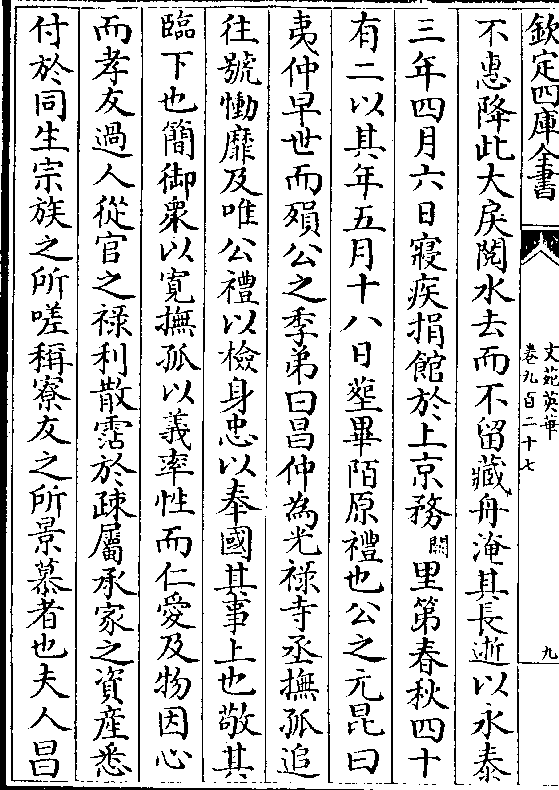 欽定四庫全書
文苑英華
卷九百二十七
九
不惠降此大戾閱水去而不留藏舟淹其長逝以永泰
三年四月六日寢疾捐館於上京務闕里第春秋四十
有二以其年五月十八日塟畢陌原禮也公之元昆曰
夷仲早世而殞公之季弟曰昌仲為光祿寺丞撫孤追
往號慟靡及唯公禮以檢身忠以奉國其事上也敬其
臨下也簡御衆以寛撫孤以義率性而仁愛及物因心
而孝友過人從官之祿利散霑於疎屬承家之資産悉
付於同生宗族之所嗟稱寮友之所景慕者也夫人昌